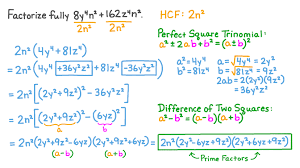 Factorize fully 8y⁴n² + 162z⁴n².
2n² 2n²
HCF: 2n²
2n²(4y⁴ + 81z⁴)
= 2n²(4y⁴ +36y²z² + 81z⁴ -36y²z²)
= 2n²[(2y²+9z²)² - 36y²z²]
= 2n²[(2y²+9z²)² - (6yz)²]
a b
= 2n²(2y²+9z²-6yz)(2y²+9z²+6yz)
(a-b) (a+b)
Perfect Square Trinomial:
a² ± 2ab + b² = (a±b)²
a² = 4y⁴ a = √4y⁴ = 2y²
b² = 81z⁴ b = √81z⁴ = 9z²
2ab = 2(2y²)(9z²)
= 36y²z²
Difference of Two Squares:
a² - b² = (a-b)(a+b)
= 2n²(2y²-6yz+9z²)(2y²+6yz+9z²)
Prime Factors